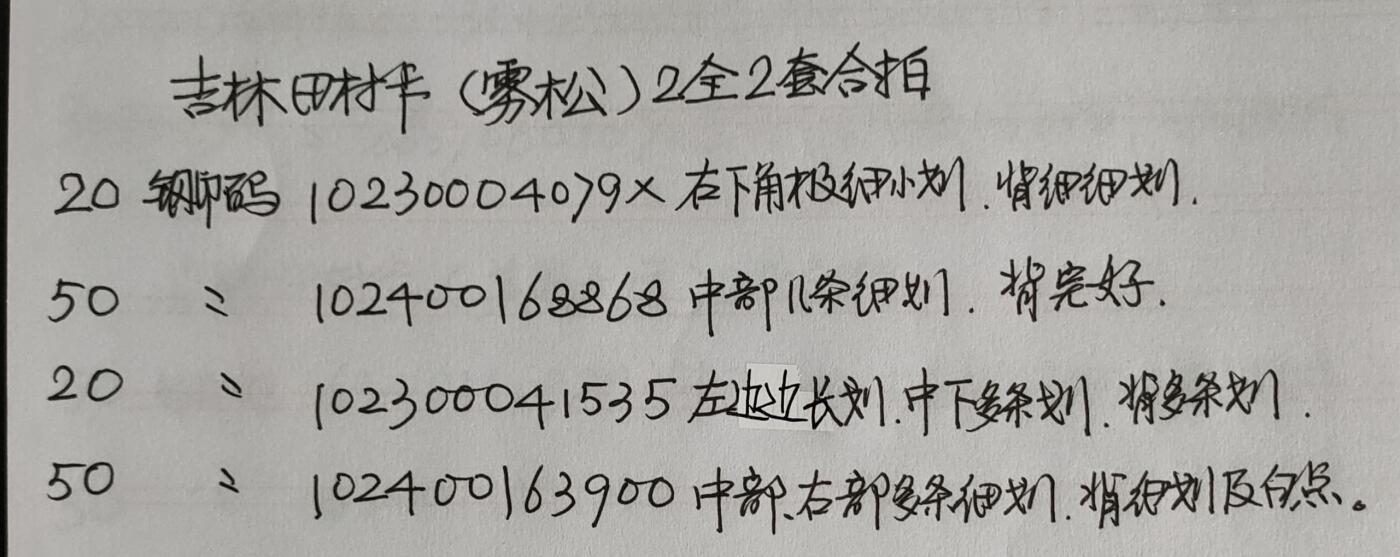 吉林田村卡（雾松）2全2套合拍
20 钢印码 10230004079× 右下角极细小划.背细细划.
50 〃 102400168868 中部几条细划.背完好.
20 〃 102300041535 左边边长划.中下多条划.背多条划.
50 〃 102400163900 中部、右部多条细划.背细划及白点。